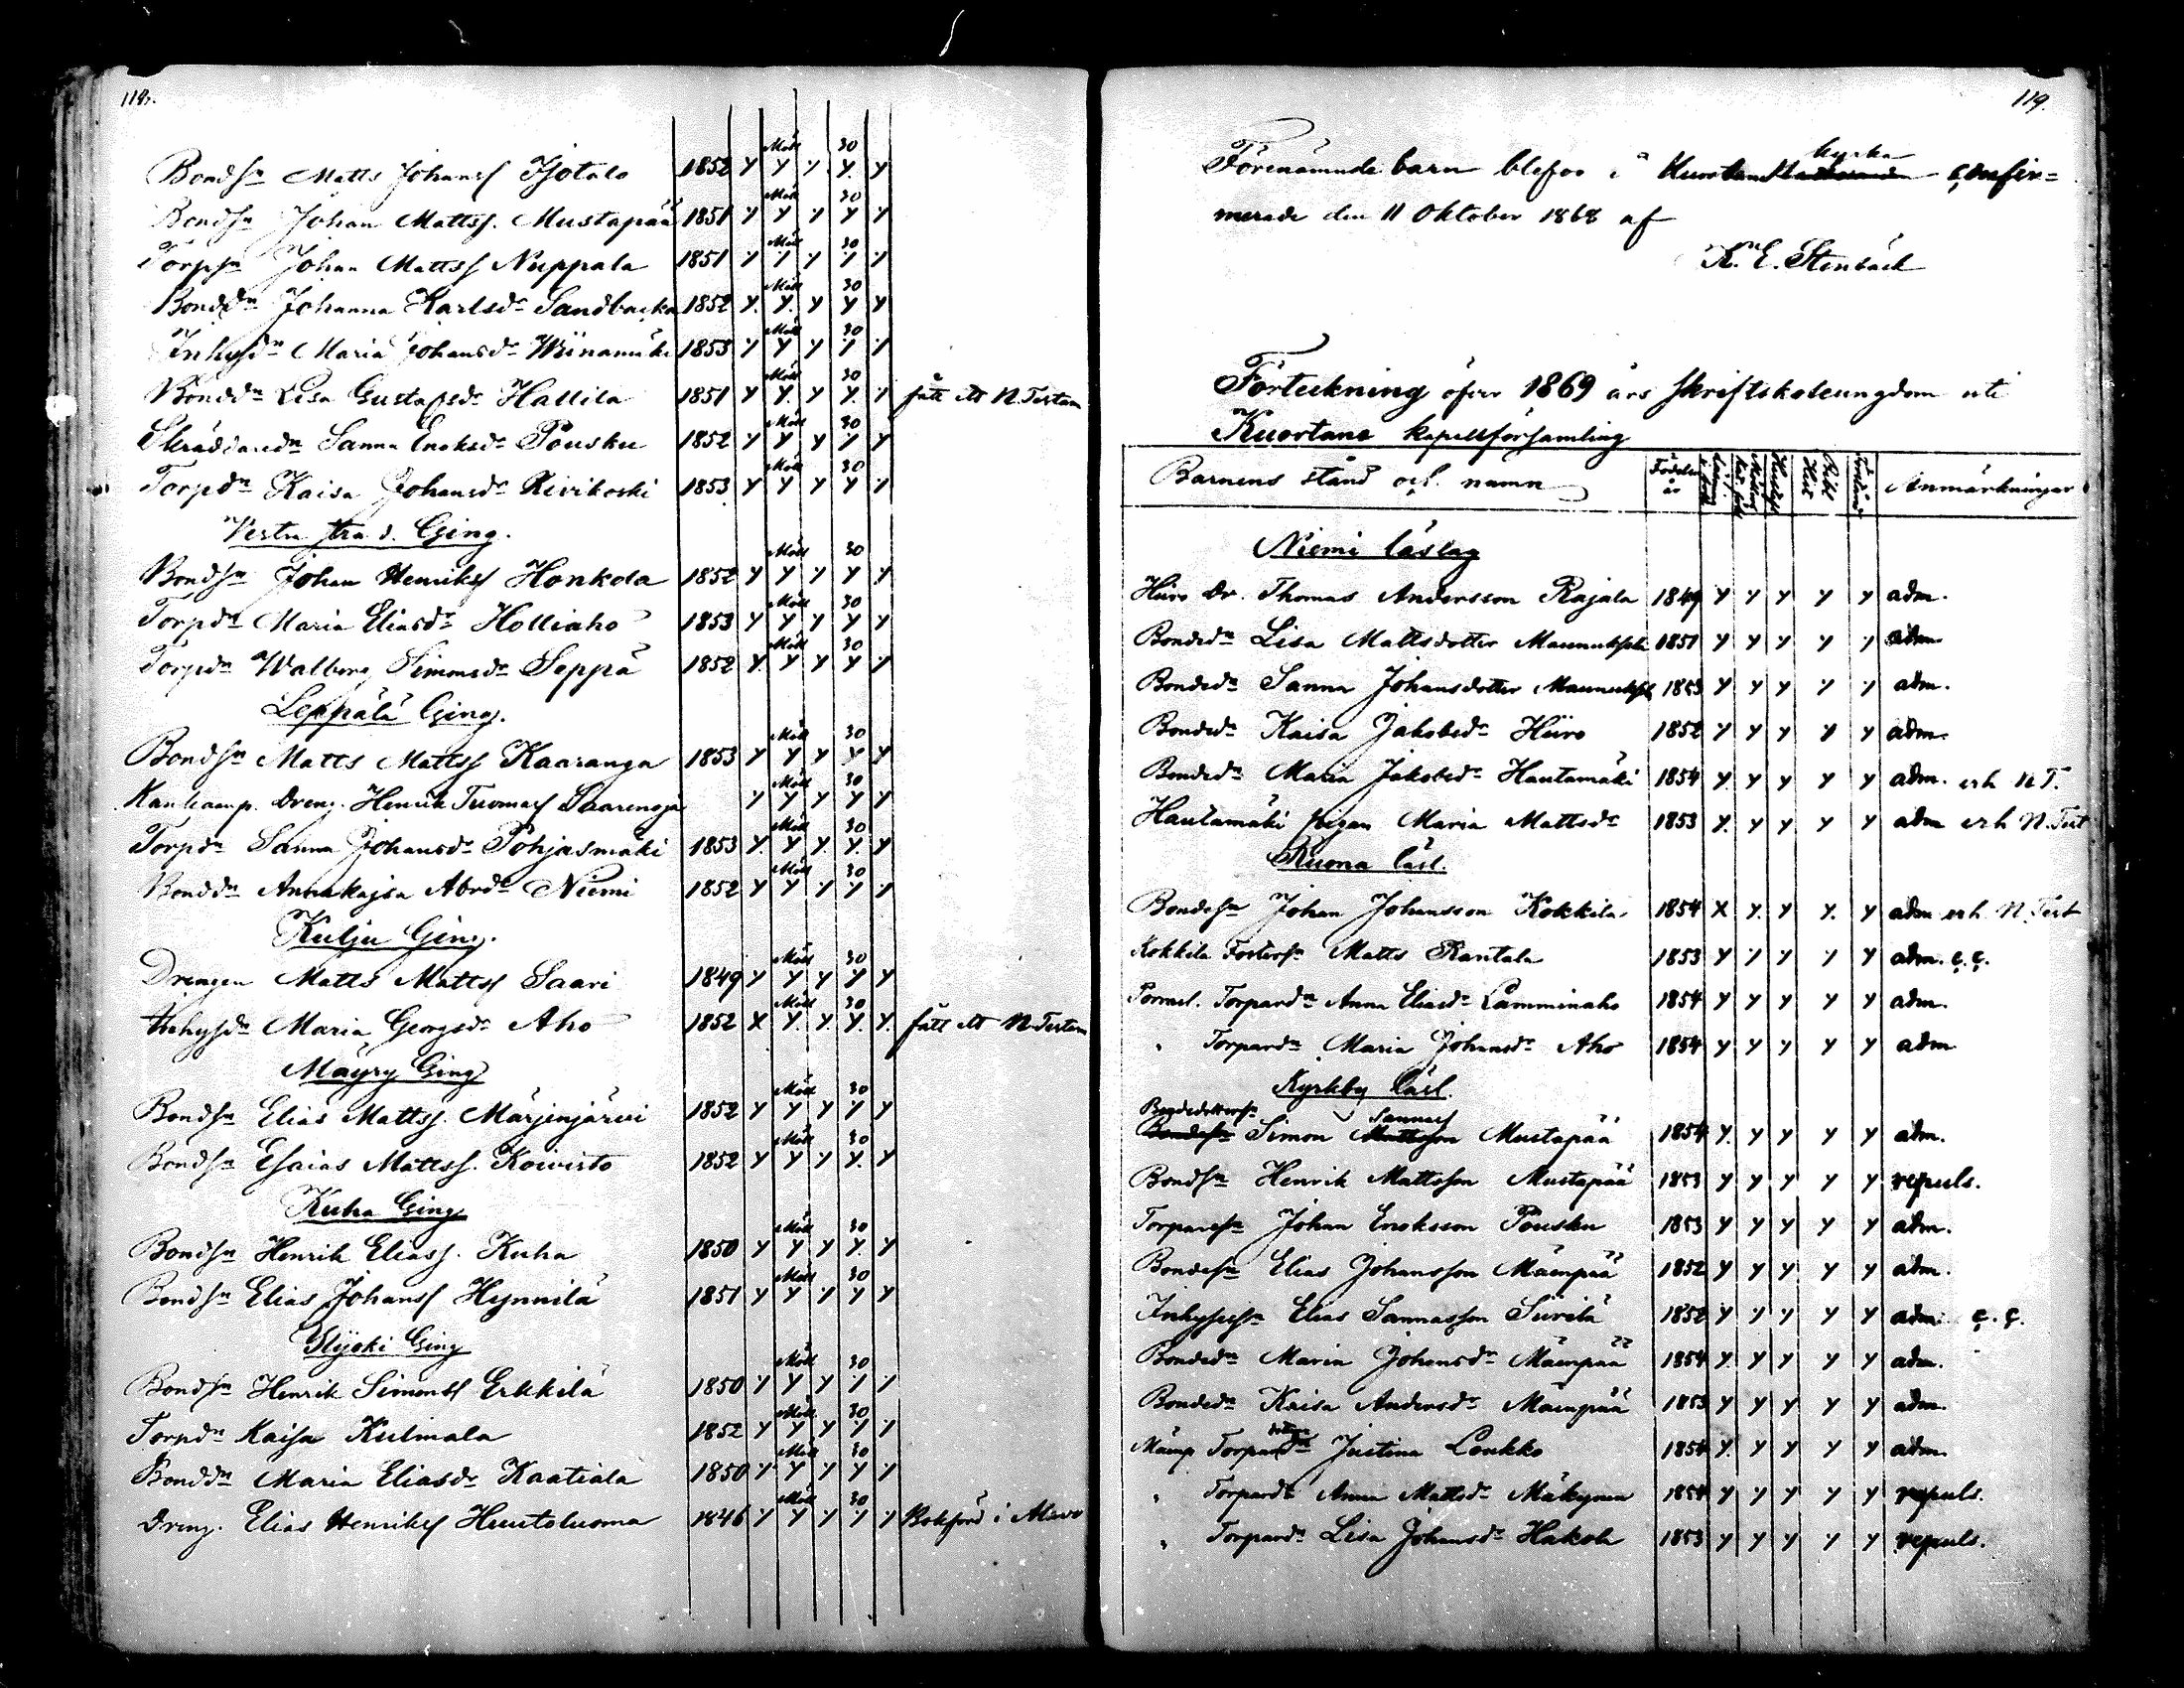 118.
Bondsn Matts Johanss Isotalo 1852 y Möll y y 30 y y
Bondsn Johan Mattss. Mustapää 1851 y Möll y y 30 y y
Torpsn Johan Mattss Nuppala 1851 y Möll y y 30 y y
Bonddn Johanna Karlsdr Sandbacka 1852 y Möll y y 30 y y
Inhysdn Maria Johansdr Wiinamäki 1853 y Möll y y 30 y y
Bonddn Lisa Gustafsdr Hallila 1851 y Möll y y 30 y y fått ett N. Testam
Skräddaredn Sanna Enoksdr Pousku 1852 y Möll y y 30 y y
Torpdn Kaisa Johansdr Kivikoski 1853 y Möll y y 30 y y
Vestra stra d. Ging.
Bondsn Johan Henrikss Honkola 1852 y Möll y y 30 y y
Torpdn Maria Eliasdr Holliaho 1853 y Möll y y 30 y y
Torpdn Walborg Simonsdr Seppä 1852 y Möll y y 30 y y
Leppälä Ging.
Bondsn Matts Mattss Kaaranga 1853 y Möll y y 30 y y
Dreng. Henrik Tuomass y Möll y y 30 y y
Torpdn Sanna Johansdr Pohjasmäki 1853 y Möll y y 30 y y
Bonddn Annakajsa Abrdr Niemi 1852 y Möll y y 30 y y
Kulju Ging.
Drengen Matts Mattss Saari 1849 y Möll y y 30 y y
Inhysdn Maria Georgsdr Aho 1852 x Möll y y 30 y y fått ett N. Testam
Mäyry Ging
Bondsn Elias Mattss. Märjenjärvi 1852 y Möll y y 30 y y
Bondsn Esaias Mattss. Koivisto 1852 y Möll y y 30 y y
Kuha Ging
Bondsn Henrik Eliass. Kuha 1850 y Möll y y 30 y y
Bondsn Elias Johanss Hynnilä 1851 y Möll y y 30 y y
Ylijoki Ging
Bondsn Henrik Simonss Erkkilä 1850 y Möll y y 30 y y
Torpdn Kaisa Kulmala 1852 y Möll y y 30 y y
Bonddn Maria Eliasdr Kaatiala 1850 y Möll y y 30 y y
Dreng. Elias Henrikss Huutoluoma 1846 y Möll y y 30 y y Bokförd i Alavo
119.
Förenämnde barn blefvo i Kuortane kyrka confir=
merade den 11 Oktober 1868 af
K. E. Stenbäck
Förteckning öfver 1869 års skriftskoleungdom uti
Kuortane kapellförsamling
Barnens stånd och namn Födelse år Anmärkningar
Niemi läslag
Hiiro Dr. Thomas Andersson Rajala 1849 y y y y y adm.
Bondedn Lisa Mattsdotter 1851 y y y y y adm
Bondedn Sanna Johansdotter 1853 y y y y y adm.
Bondedn Kaisa Jakobsdr Hiiro 1852 y y y y y adm.
Bondedn Maria Jakobsdr Hautamäki 1854 y y y y y adm. erh N T.
Hautamäki pigan Maria Mattsdr 1853 y y y y y adm erh N. Test
Ruona läsl.
Bondesn Johan Johansson Kokkila 1854 x y y y y adm erh. N. Test
Kokkila Fostersn Matts Rantala 1853 y y y y y adm. c. c.
Torpardn Anna Eliasdr Lamminaho 1854 y y y y y adm.
" Torpardn Maria Johansdr Aho 1854 y y y y y adm
Kyrkby läsl.
Bondedottersn Simon Sannass Mustapää 1854 y y y y y adm.
Bondsn Henrik Mattsson Mustapää 1853 y y y y y repuls.
Torparesn Johan Enoksson Pousku 1853 y y y y y adm.
Bondesn Elias Johansson Mäenpää 1852 y y y y y adm.
Inhysesn Elias Sannasson Siirilä 1852 y y y y y adm. c. c.
Bondedn Maria Johansdr Mäenpää 1854 y y y y y adm.
Bondedn Kaisa Andersdr Mäenpää 1853 y y y y y adm.
Mäenp Torpardn Justina Loukko 1854 y y y y y adm.
" Torpardn Anna Mattsdr Mäkynen 1854 y y y y y repuls.
" Torpardn Lisa Johansdr Hakola 1853 y y y y y repuls.